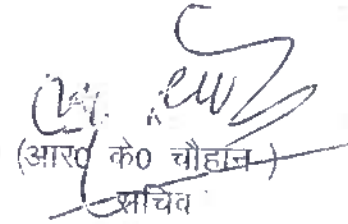 (आर0 के0 चौहान )
सचिव